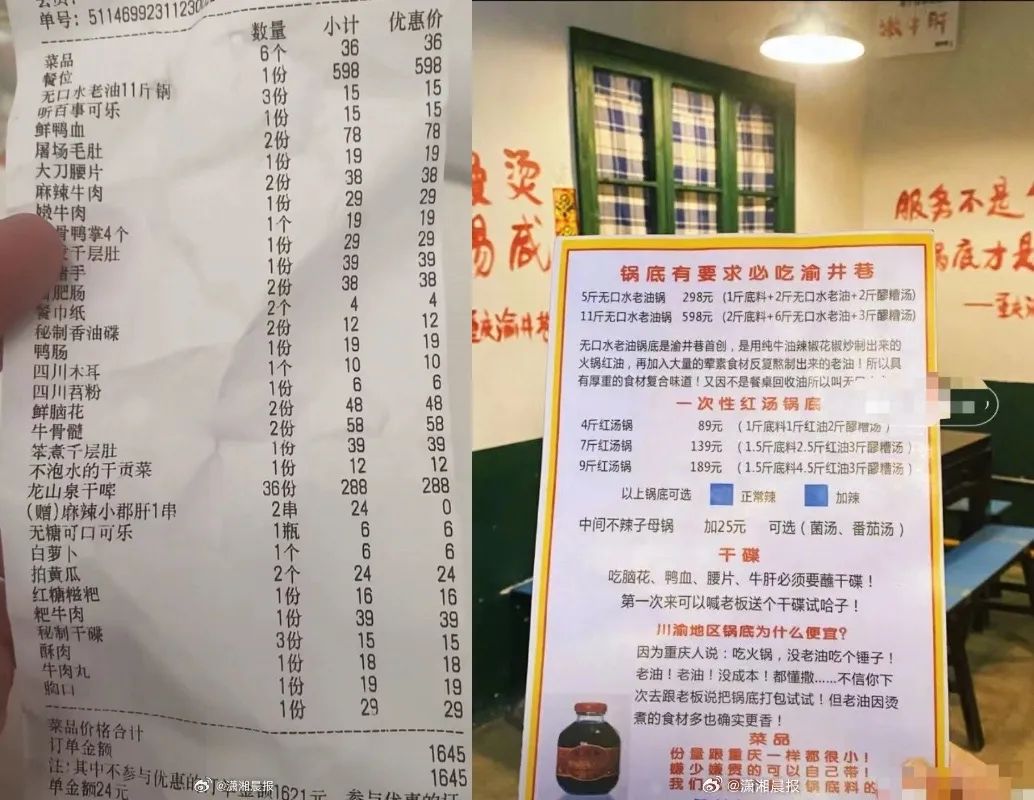 单号：51146992311230
数量 小计 优惠价
菜品
餐位 6个 36 36
无口水老油11斤锅 1份 598 598
听百事可乐 3份 15 15
鲜鸭血 1份 15 15
屠场毛肚 2份 78 78
大刀腰片 1份 19 19
麻辣牛肉 2份 38 38
嫩牛肉 1份 29 29
骨鸭掌4个 1个 19 19
千层肚 1份 29 29
手 1份 39 39
肥肠 2份 38 38
餐巾纸 2个 4 4
秘制香油碟 2份 12 12
鸭肠 1份 19 19
四川木耳 1个 10 10
四川苕粉 1份 6 6
鲜脑花 2份 48 48
牛骨髓 2份 58 58
笨煮千层肚 1份 39 39
不泡水的干贡菜 1份 12 12
龙山泉干啤 36份 288 288
(赠)麻辣小郡肝1串 2串 24 0
无糖可口可乐 1瓶 6 6
白萝卜 1个 6 6
拍黄瓜 2个 24 24
红糖糍粑 1份 16 16
粑牛肉 1份 39 39
秘制干碟 3份 15 15
酥肉 1份 18 18
牛肉丸 1份 19 19
胸口 1份 29 29
菜品价格合计 1645
订单金额 1645
注:其中不参与优惠的
单金额24元
@潇湘晨报
嫩牛肝
烫
咸
重庆渝井巷
服务不是
锅底才是
锅底有要求必吃渝井巷
5斤无口水老油锅 298元 (1斤底料+2斤无口水老油+2斤醪糟汤)
11斤无口水老油锅 598元 (2斤底料+6斤无口水老油+3斤醪糟汤)
无口水老油锅底是渝井巷首创，是用纯牛油辣椒花椒炒制出来的
火锅红油，再加入大量的荤素食材反复熬制出来的老油！所以具
有厚重的食材复合味道！又因不是餐桌回收油所以叫无口
一次性红汤锅底
4斤红汤锅 89元 （1斤底料1斤红油2斤醪糟汤）
7斤红汤锅 139元 （1.5斤底料2.5斤红油3斤醪糟汤）
9斤红汤锅 189元 （1.5斤底料4.5斤红油3斤醪糟汤）
以上锅底可选 正常辣 加辣
中间不辣子母锅 加25元 可选（菌汤、番茄汤）
干碟
吃脑花、鸭血、腰片、牛肝必须要蘸干碟！
第一次来可以喊老板送个干碟试哈子！
川渝地区锅底为什么便宜?
因为重庆人说：吃火锅，没老油吃个锤子！
老油！老油！没成本！都懂撒......不信你下
次去跟老板说把锅底打包试试！但老油因烫
煮的食材多也确实更香！
菜品
份量跟重庆一样都很小！
嫌少嫌贵的可以自己带！
@潇湘晨报